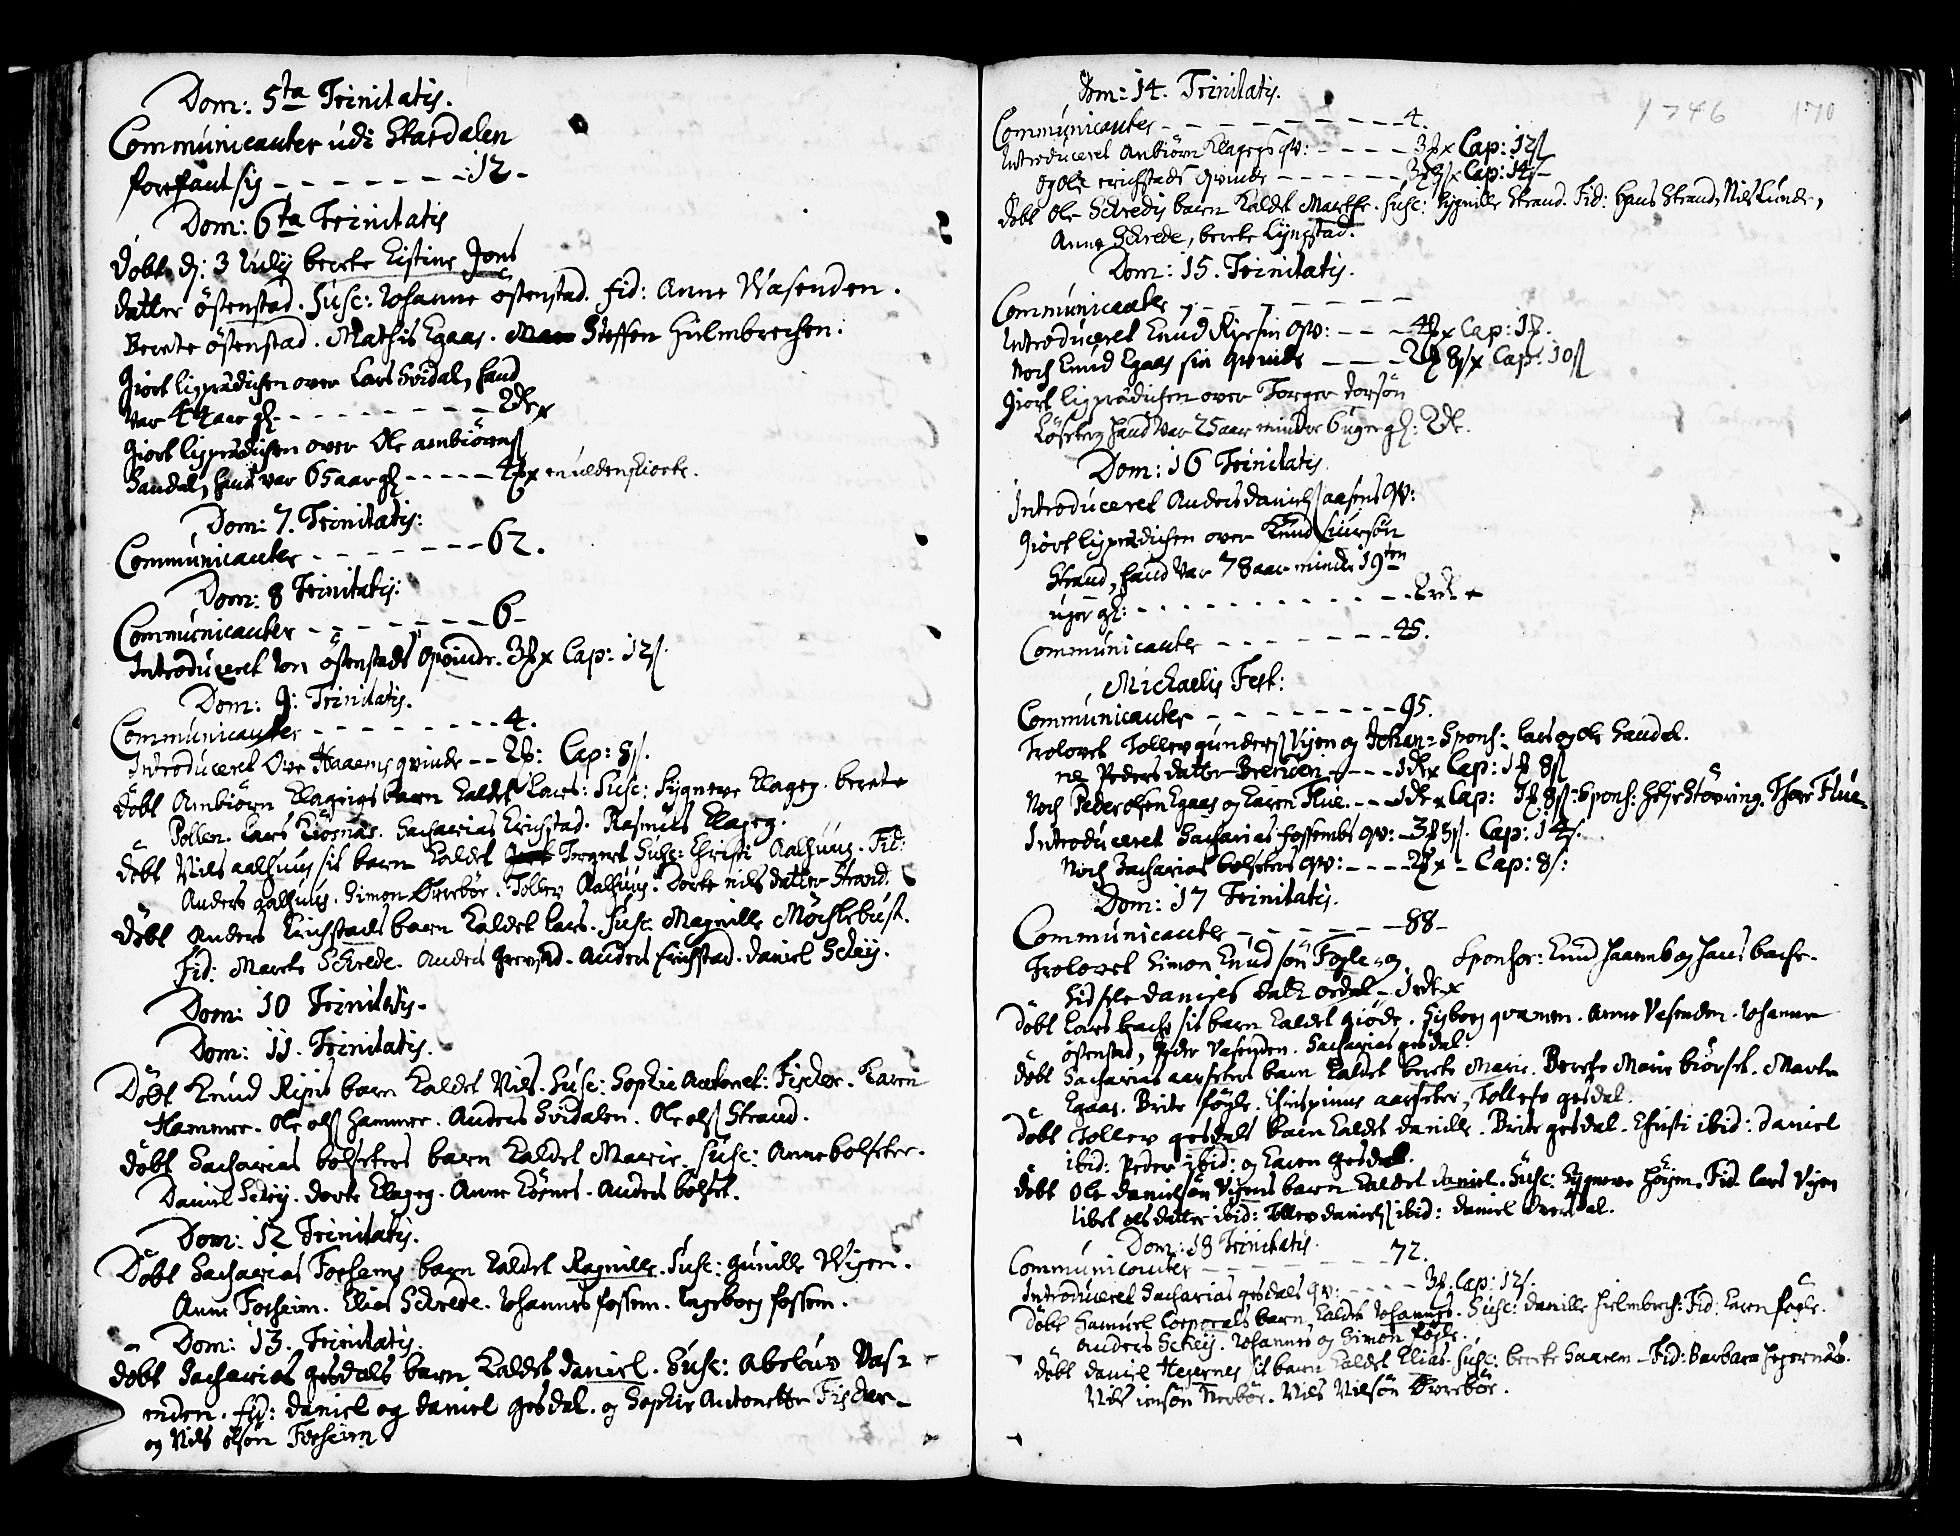 Dom: 5ta Trinitatis.
Communicanter udi Stardalen
forefant sig - - - - - - - - 12 -
Dom: 6ta Trinitatis
Döbt d: 3 July berete Listine Jons
datter östenstad. Susc: Johanne östenstad. fid: Anne Wasenden.
Berete östenstad. Mathis Egaas. Steffen Hulmbrechen.
Giort ligprædichen over Lars Svidal, hand
var 44 aar gl - - - - - - - - - 2dr
Giort ligprædichen over Ole ambiörns
Sandal, hand var 65 aar gl - - - - - 4
Dom: 7. Trinitatis:
Communicanter - - - - - - - 62.
Dom: 8 Trinitatis:
Communicanter - - - - - - 6 -
Introduceret Jon östenstads qvinde. 3 Cap: 12s.
Dom: 9: Trinitatis.
Communicanter - - - - - - - - 4.
Introduceret Ove Haaems qvinde - - 2 : Cap: 8s.
döbt Ambiörn Klagegs barn kaldet Lars: Susc: Sygneve Klageg. berete
Pollen. Lars Kiösnas. Sacharias Erichstad. Rasmus Klageg.
döbt Nils aalhuus sit barn kaldet Torgert Susc: Christi Aalhuus. Fid:
Anders aalhuus. Simon Øvrebör. Tollev Aalhuus. Dorte nils datter Strand.
döbt Anders Erichstads barn kaldet Lars. Susc. Magnille Möchlebust.
Fid: Marete Schrede. Anders Grevstad. Anders Erichstad. daniel Schey.
Dom: 10 Trinitatis.
Dom: 11. Trinitatis.
Döbt Knud Ripis barn kaldet Nils. Susc: Sophie Antonet: Fischer. Karen
Hammer. Ole ols Hammer. Anders Svidalen. Ole ols Strand.
döbt Sacharias bolseters barn kaldet Marie. Susc: Anne bolseter.
Daniel Schey. dorte Klageg. Anne Kösnes. Anders bolset.
Dom: 12 Trinitatis.
Döbt Sacharias Forseims barn kaldet Ragnille. Susc: Gunille Wijen.
Anne Forseim. Elias Schrede. Johannes fossem. Ingeborg fossem.
Dom: 13. Trinitatis.
döbt Sacharias gesdals barn kaldet daniel. Susc: Abelus Vas=
enden. fid: daniel og daniel gesdal. og Sophie Antonette Fischer
og Nils olsön Forseim
1746 170
Dom: 14. Trinitatis.
Communicanter - - - - - - - - - 4.
Introduceret Anbiörn Klagegs qv: - - - - - 3 Cap: 12s
og ole erichstads qvinde - - - - - - 3 Cap: 14s
döbt Ole Schredis barn kaldet Marthe. Susc: Sygnille Strand. Fid: hans Strand, Nils Lunde,
Anne Schrede, berete Lyngstad.
Dom: 15. Trinitatis.
Communicanter
Introduceret Knud Ripsin qv: - - - 4 Cap: 1
Noch Knud Egaas sin qvinde - - - 2 8s Cap: 10s
Giort ligprædichen over Torger Jorsön
hand var 25 aar mindre 6 uger gl: 2dr.
Dom: 16 Trinitatis.
Introduceret Anders daniels aasens qv:
Giort ligprædichen over Knud Siursön
Strand, hand var 78 aar minder 19ten
uger gl: - - - - - - - - - - - 2dr
Communicanter - - - - - - - 45.
Michaelis Fest:
Communicanter - - - - - - - - 95.
Trolovet Tollev gunders Vijen og Johan= Spons: Lars og Ole Sandal.
ne Peders datter Brenden - - - 1dr Cap: 1 8s
Noch Peder olsen Egaas og Karen Flue. - - - 1dr Cap: 1 8s Spons: Helje Stöpring. Thore Flue
Introduceret Sacharias fossembs qv: - 3 8s. Cap: 14s.
Noch Zacharias bolseters qv: - - - - 2 - Cap: 8s:
Dom: 17 Trinitatis.
Communicanter - - - - - - 88 -
Trolovet Simon Knudsön Fogle og Sponsor: Knud Haamb og Hans bache.
Sidsele daniels datt ordal - 1dr
döbt Lars bache sit barn kaldet giöde. Syborg qvamen. Anne Vasenden. Johanne
östenstad, Peder Vasenden. Sacharias gesdal.
döbt Sacharias aarseters barn kaldet berete Marie. Berete Marie biörset. Marte
Egaas. Brite fögle. Chrispinus aarseter, Tollef gesdal.
Döbt Tollev gesdals barn kaldet danille. Brite gesdal. Christi ibid: daniel
ibid: Peder ibid: og Karen gesdal.
döbt Ole danielsön Vijens barn kaldet daniel. Susc: Sygneve höyem. Fid. Lars Vijen
libet ols datter ibid: Tollev daniels ibid: daniel Aversdal.
Dom: 18 Trinitatis.
Communicanter - - - - - - - - - 72.
Introduceret Sacharias gesdals qv: - - - - - 3 . Cap: 12s.
Döbt Samuel Corporals barn kaldet Johannes. Susc: danille Hielmbrech: Fid: Karen fogle.
Anders Schey. Johannes og Simon fögle.
döbt daniel Hegernes sit barn kaldet Elias. Susc: berete Haarem - Fid: Barbara Hegernæs.
Nils jensön Nerbör. Nils Nilsön Øvrebör.